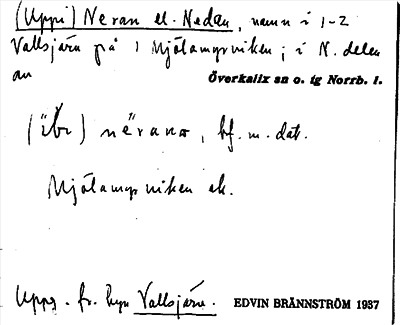 (Uppi) Neran el. Nedan, namn i 1-2
Vallsjärv på 1 Mjölamyrviken; i N. delen
av Överkalix sn o. tg Norrb. l.
nerana, bf. m. dat.
Mjölamyrviken ek.
Uppg. fr. byn Vallsjärv. EDVIN BRÄNNSTRÖM 1937